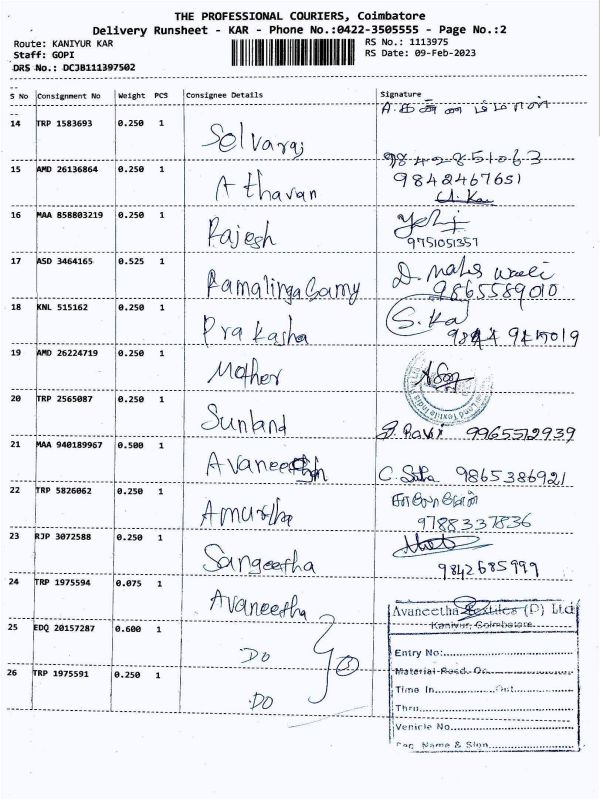 THE PROFESSIONAL COURIERS, Coimbatore
Delivery Runsheet - KAR - Phone No.:0422-3505555 - Page No.:2
Route: KANIYUR KAR
RS No.: 1113975
Staff: GOPI
RS Date: 09-Feb-2023
DRS No.: DCJB111397502
S No Consignment No Weight PCS Consignee Details Signature
14 TRP 1583693 0.250 1 Selvaraj
9842851063
15 AMD 26136864 0.250 1 Athavan 9842467651
16 MAA 858803219 0.250 1 Rajesh
9751051357
17 ASD 3464165 0.525 1 Ramalinga Samy
9865589010
18 KNL 515162 0.250 1 Prakasha S.Ka
19 AMD 26224719 0.250 1 Mother
20 TRP 2565087 0.250 1 Sunland Ravi 9965512939
21 MAA 940189967 0.500 1 C. 9865386921
22 TRP 5826062 0.250 1 Amurtha
9788337836
23 RJP 3072588 0.250 1 Sangeetha
9842685999
24 TRP 1975594 0.075 1 Avaneetha
25 EDQ 20157287 0.600 1 DO
26 TRP 1975591 0.250 1 DO
3
Avaneetha Textiles (P) Ltd
Kaniyur, Coimbatore
Entry No:
Material Recd. On
Time In Out
Thru
Vehicle No
Name & Sign